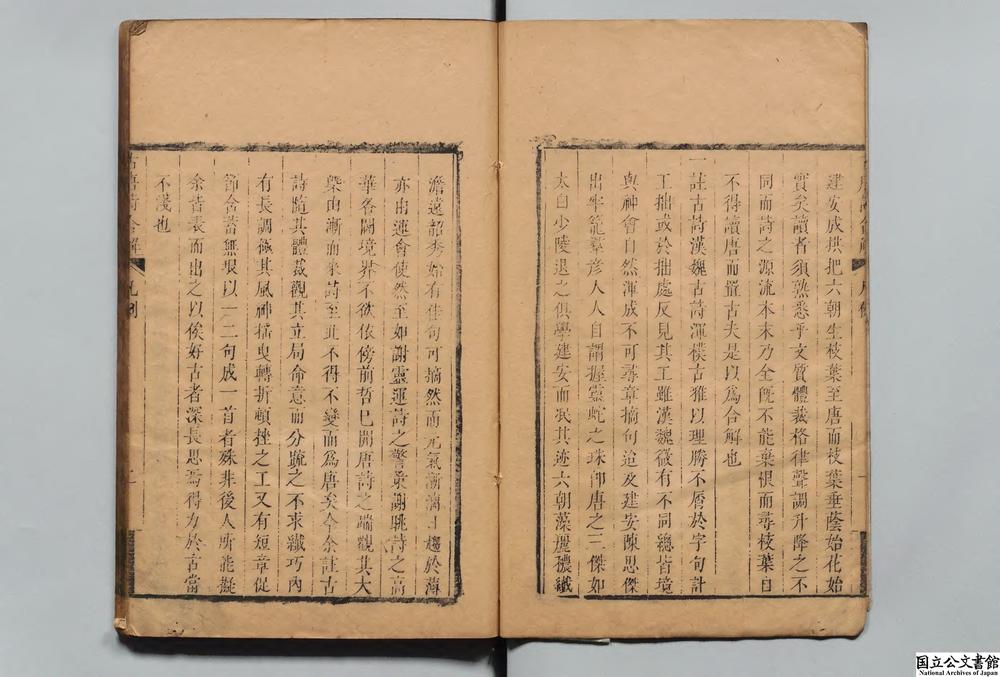 建安成拱把六朝生枝葉至唐而枝葉垂蔭始花始
實矣讀者須熟悉乎文質體裁格律聲調升降之不
同而詩之源流本末乃全旣不能棄根而尋枝葉自
不得讀唐而置古夫是以爲合解也
一註古詩漢魏古詩渾樸古雅以理勝不屑於字句計
工拙或於拙處反見其工雖漢魏微有不同總皆境
與神會自然渾成不可尋章摘句迨及建安陳思傑
出牢籠羣彦人人自謂握靈蛇之珠卽唐之三傑如
太白少陵退之俱學建安而泯其迹六朝藻麗穠纖
澹遠韶秀始有佳句可摘然而元氣漸漓才趨於薄
亦由運會使然至如謝靈運詩之警策謝眺詩之高
華各闢境界不欲依傍前哲已開唐詩之端觀其大
槩由漸而來詩至此不得不變而爲唐矣今余註古
詩隨其體裁觀其立局命意而分疏之不求纖巧內
有長調極其風神搖曳轉折頓挫之工又有短章促
節含蓄無垠以一二句成一首者殊非後人所能擬
余皆表而出之以俟好古者深長思焉得力於古當
不淺也
古唐詩合解
凡例
國立公文書館
National Archives of Japan